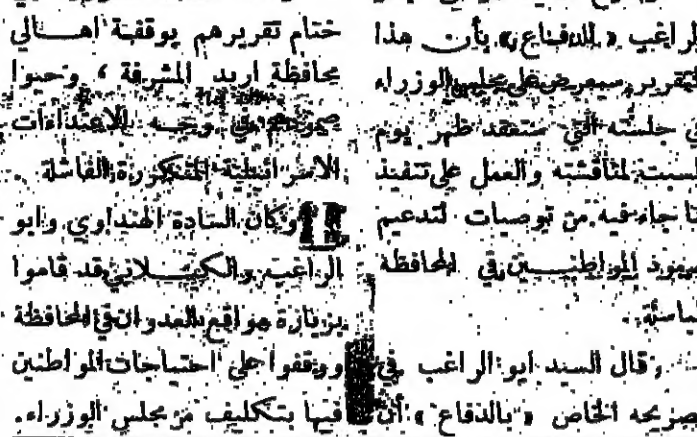 الراغب « للدفاع » بأن هذا
التقرير سيعرض على مجلس الوزراء
في جلسته التي ستعقد ظهر يوم
السبت لمناقشته والعمل على تنفيذ
ما جاء فيه من توصيات لتدعيم
صمود المواطنين في المحافظة
الباسلة .
وقال السيد ابو الراغب في
تصريحه الخاص « بالدفاع » أن
ختام تقريرهم بوقفة اهالي
محافظة اربد المشرفة ، وحيوا
صمودهم في وجه الاعتداءات
الاسرائيلية المتكررة الفاشلة .
وكان السادة الهنداوي وابو
الراغب والكيلاني قد قاموا
بزيارة مواقع العدوان في المحافظة
ووقفوا على احتياجات المواطنين
فيها بتكليف من مجلس الوزراء .